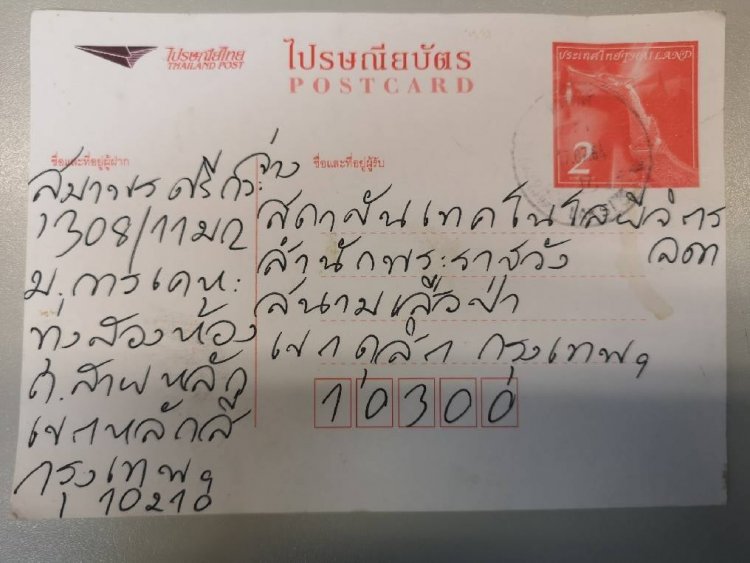 ไปรษณีย์ไทย
THAILAND POST
ไปรษณียบัตร
POSTCARD
ประเทศไทย THAILAND
2
บาท
ชื่อและที่อยู่ผู้ฝาก
สมาพร ศรีก๊ะจ่าง
1308/11 ม2
ม.การเคหะ
ทุ่งสองห้อง
ถ.สายหลัก
เขตหลักสี่
กรุงเทพฯ
10210
ชื่อและที่อยู่ผู้รับ
สถาบันเทคโนโลยีจิตร
ลดา
สำนักพระราชวัง
สนามเสือป่า
เขตดุสิต กรุงเทพฯ
10300